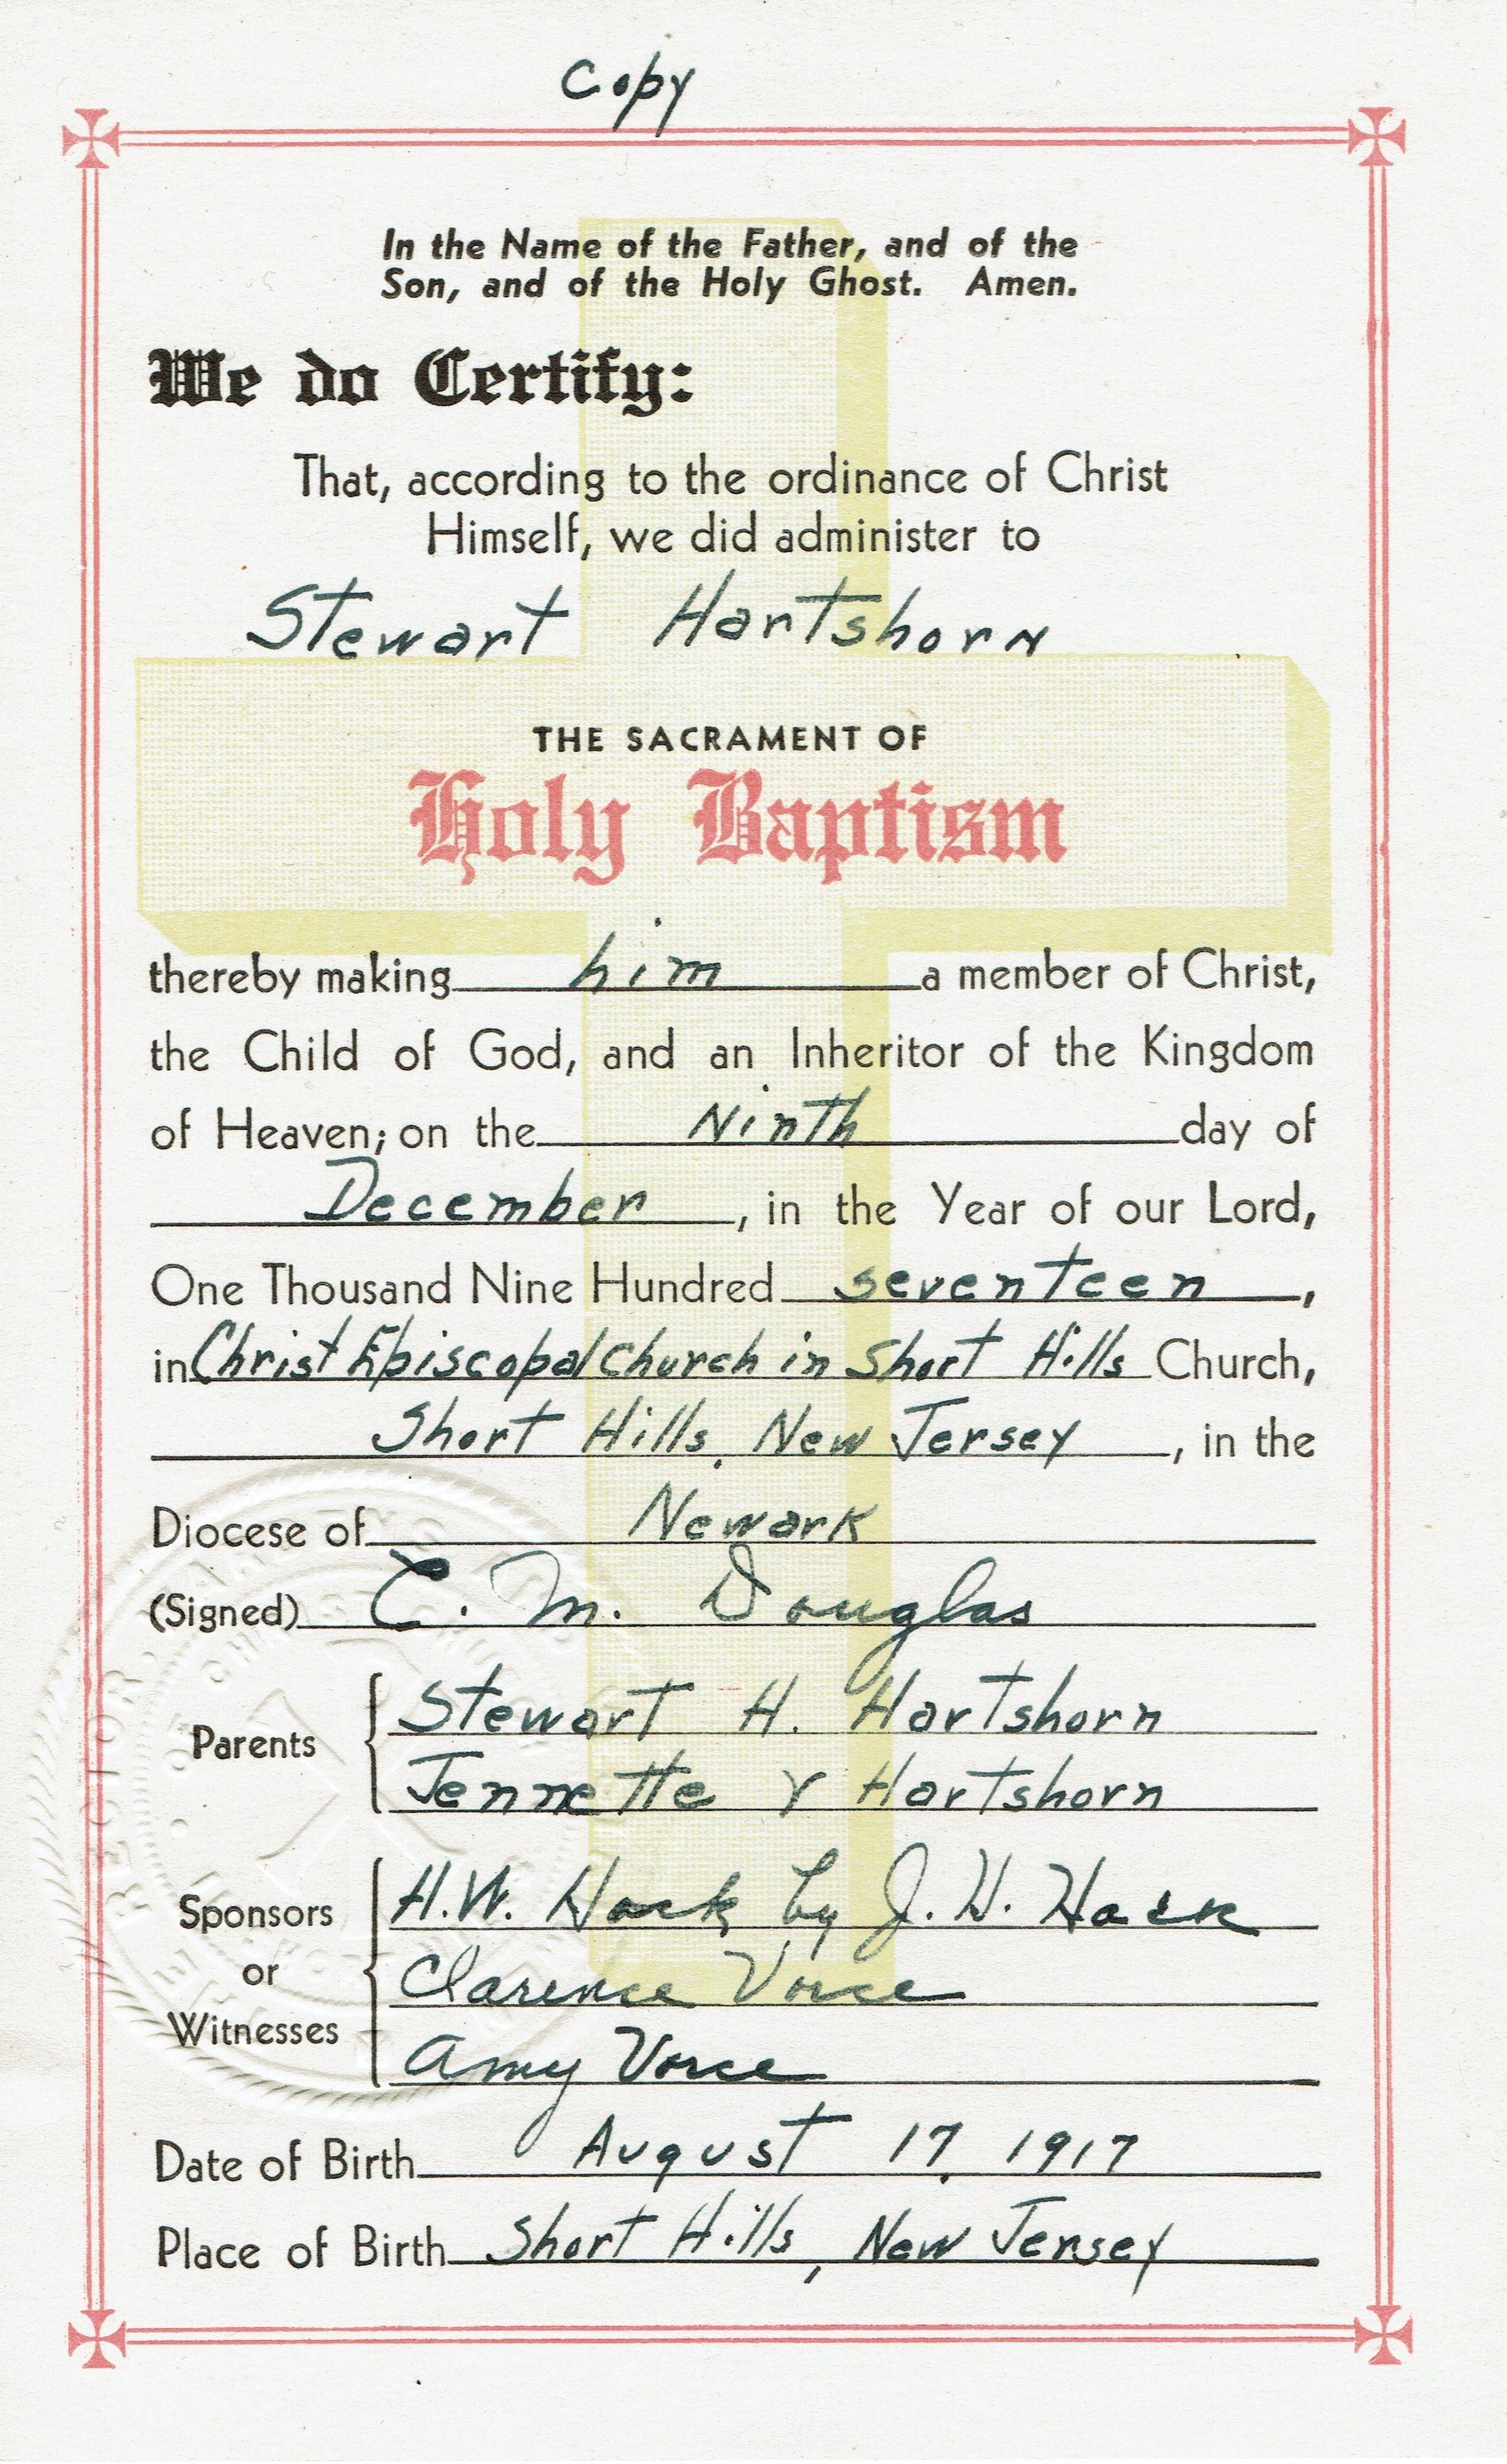 Copy
In the Name of the Father, and of the
Son, and of the Holy Ghost. Amen.
We do Certify:
That, according to the ordinance of Christ
Himself, we did administer to
Stewart Hartshorn
THE SACRAMENT OF
Holy Baptism
thereby making him a member of Christ,
the Child of God, and an Inheritor of the Kingdom
of Heaven; on the Ninth day of
December, in the Year of our Lord,
One Thousand Nine Hundred seventeen,
in Christ Episcopal Church in Short Hills Church,
Short Hills, New Jersey, in the
Diocese of Newark
(Signed) C. M. Douglas
Parents
Stewart H. Hartshorn
Jennette Y Hartshorn
Sponsors or Witnesses
H.W. Hack by J. H. Hack
Clarence Vorce
Amy Vorce
Date of Birth August 17, 1917
Place of Birth Short Hills, New Jersey